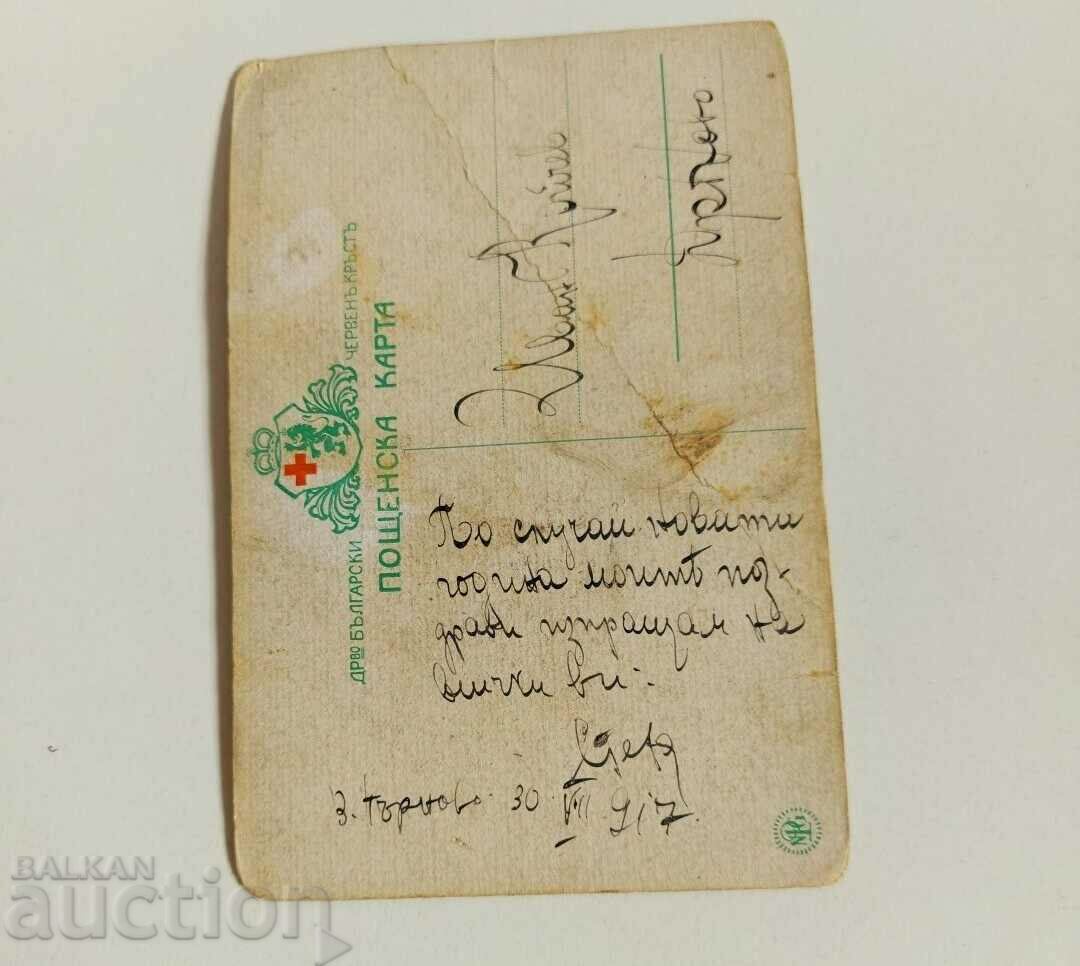 ДРВО БЪЛГАРСКИ ЧЕРВЕНЪ КРѢСТЪ
ПОЩЕНСКА КАРТА
По случай новата
година моитѣ поз-
драви изпращам на
всички ви.
З. Търново 30 VII 917
Иван
BALKAN
auction